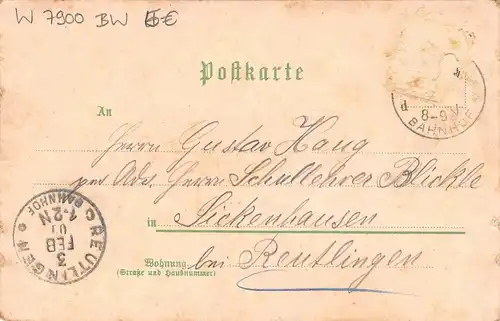 W 7900 BW 5€
Postkarte
k
d
8-9V
BAHNHOF
An
Herrn Gustav Haug
per Adr. Herrn Schullehrer Blickle
in Sickenhausen
Wohnung bei Reutlingen
(Straße und Hausnummer)
REUTLINGEN
BAHNHOF
1-2N
01
FEB
3